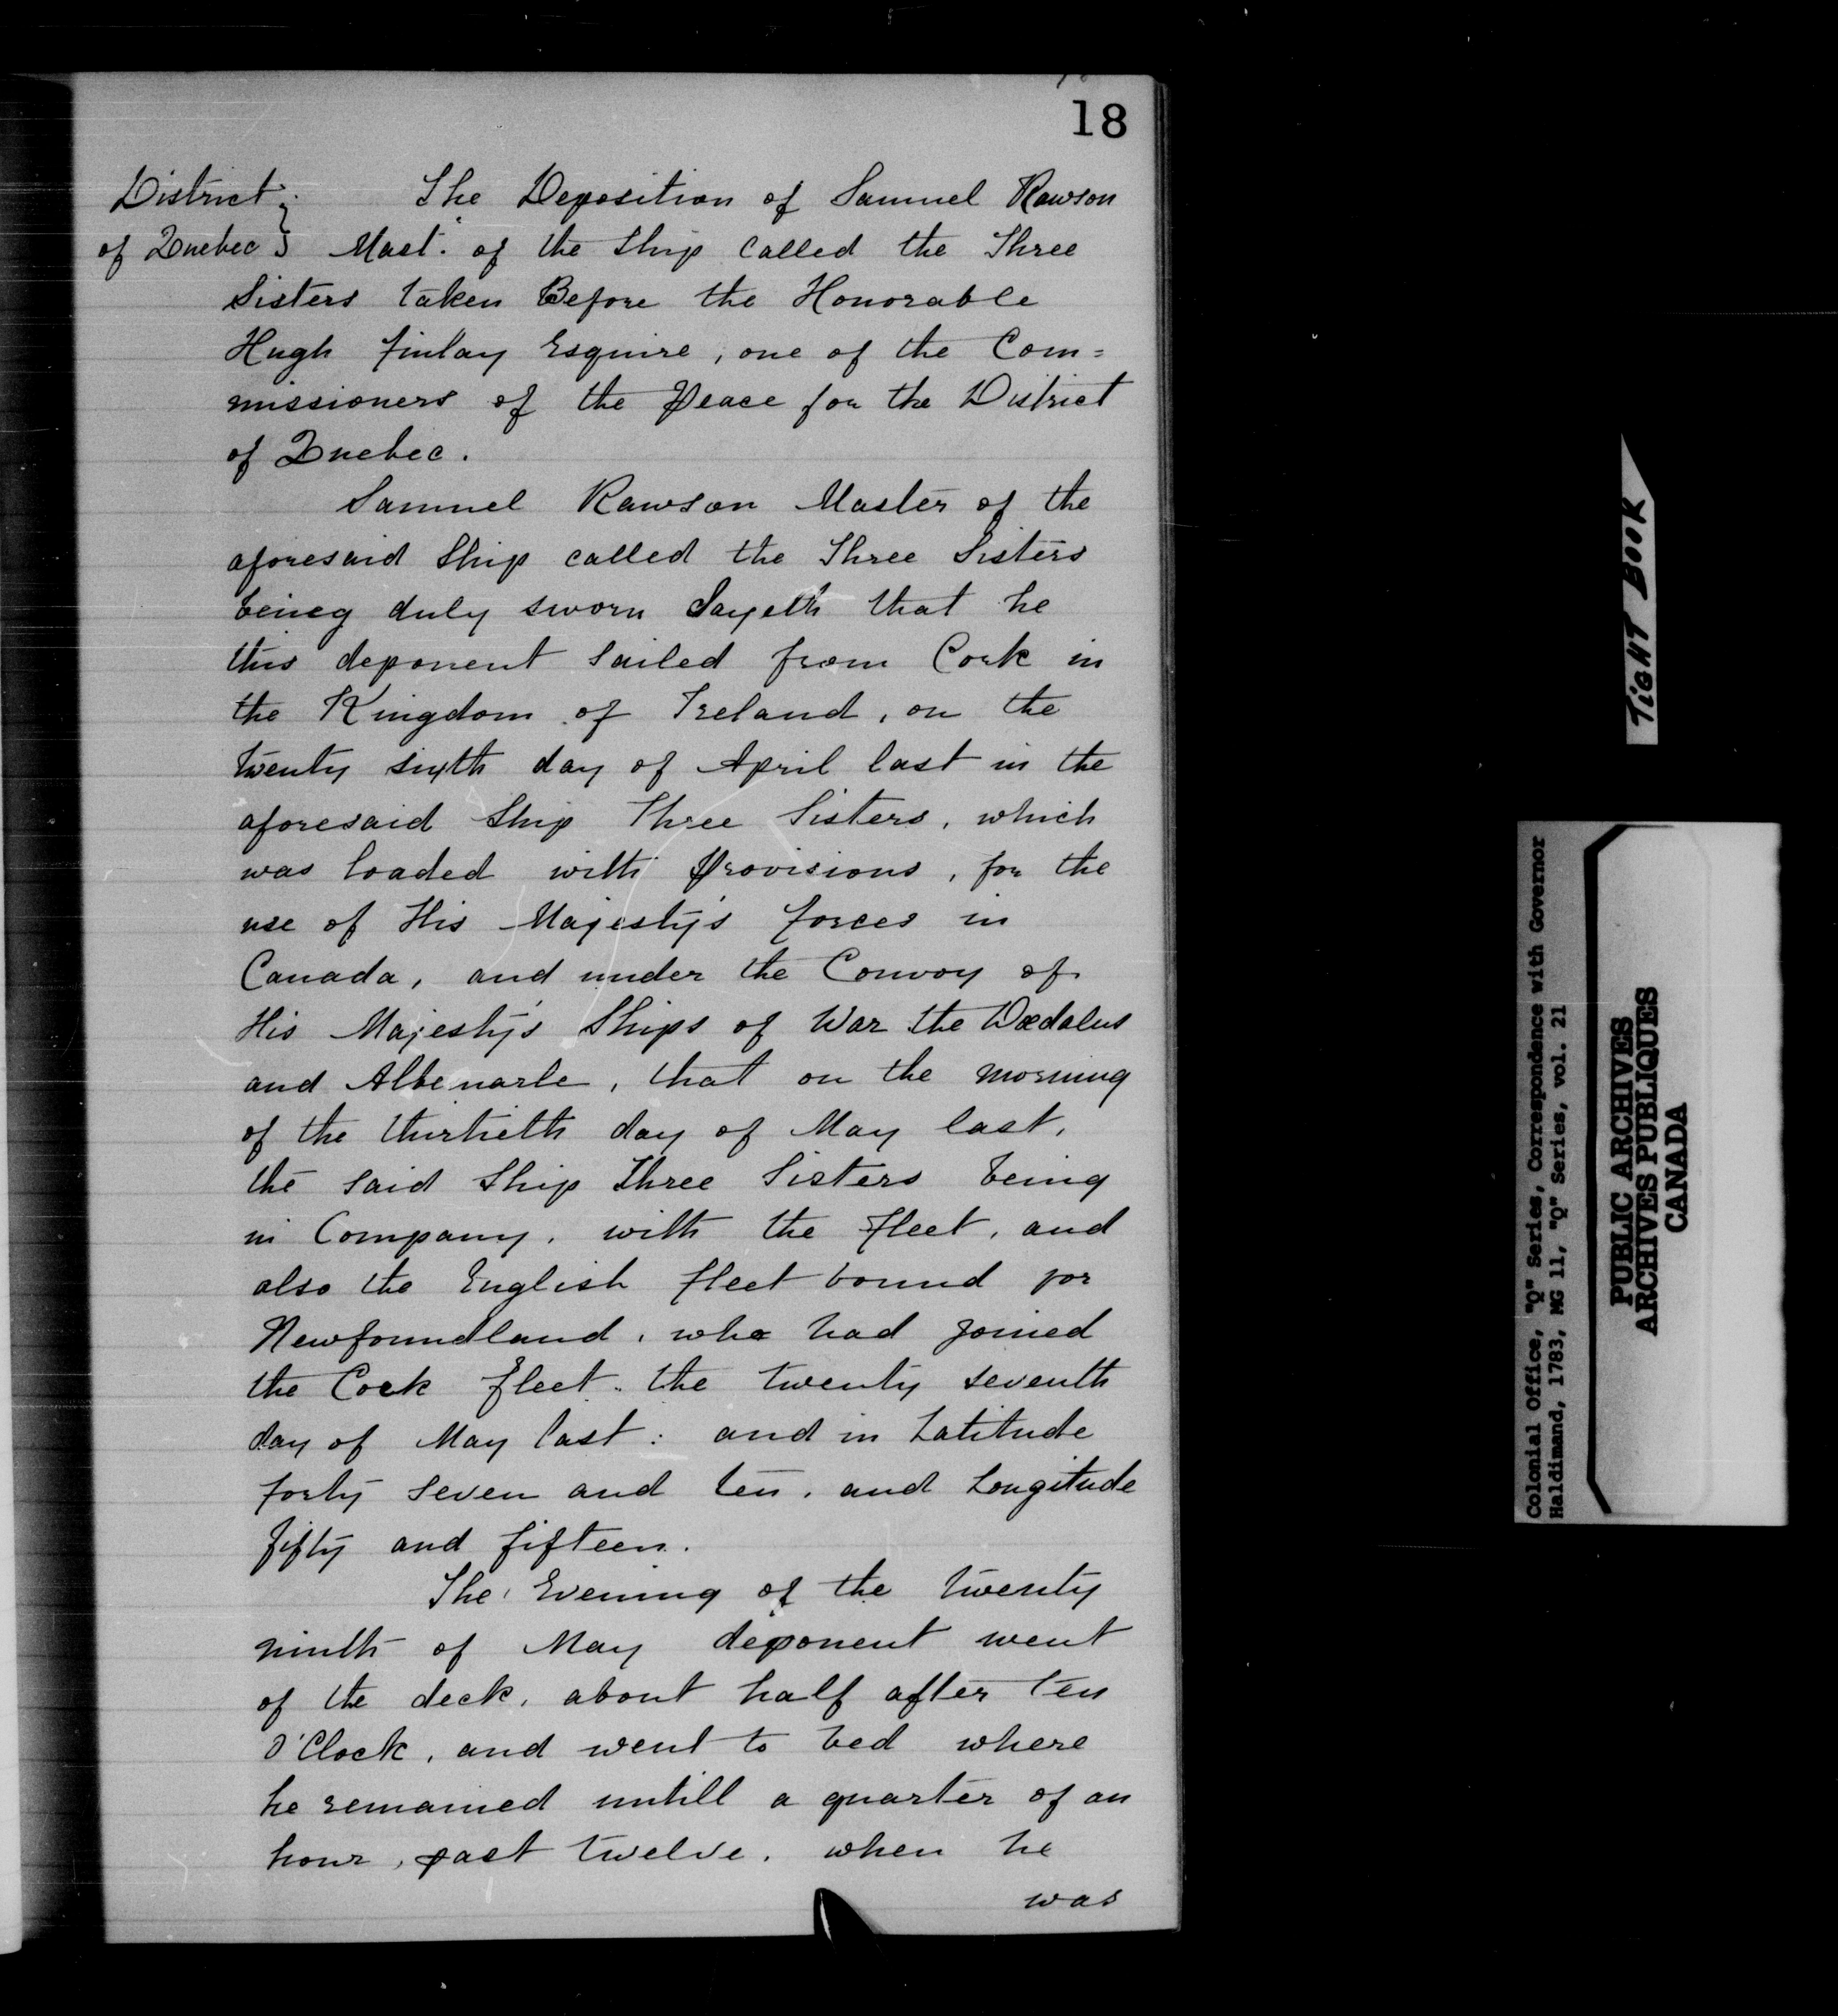 18
District } The Deposition of Samuel Rawson
of Quebec } Mast. of the Ship called the Three
Sisters taken Before the Honorable
Hugh Finlay Esquire, one of the Com=
missioners of the Peace for the District
of Quebec.
Samuel Rawson Master of the
aforesaid Ship called the Three Sisters
being duly sworn Sayeth that he
this deponent sailed from Cork in
the Kingdom of Ireland, on the
twenty sixth day of April last in the
aforesaid Ship Three Sisters, which
was loaded with Provisions, for the
use of His Majesty's forces in
Canada, and under the Convoy of
His Majesty's Ships of War the Dædalus
and Albemarle, that on the morning
of the thirtieth day of May last,
the said Ship Three Sisters being
in Company, with the fleet, and
also the English fleet bound for
Newfoundland, who had joined
the Cork fleet. the twenty seventh
day of May last: and in Latitude
forty seven and ten, and Longitude
fifty and fifteen.
The Evening of the twenty
ninth of May deponent went
of the deck, about half after ten
O'Clock, and went to bed where
he remained untill a quarter of an
hour, past twelve, when he
was
TIGHT BOOK
Colonial Office, "Q" Series, Correspondence with Governor
Haldimand, 1783, MG 11, "Q" Series, vol. 21
PUBLIC ARCHIVES
ARCHIVES PUBLIQUES
CANADA